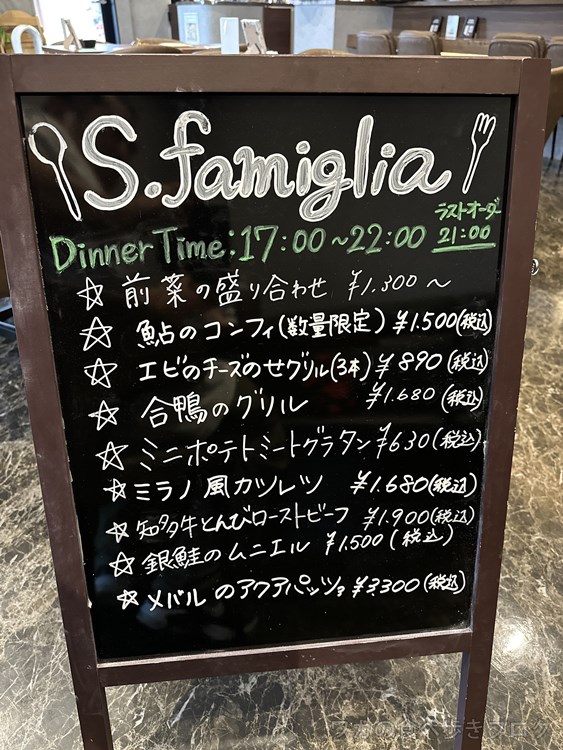 S.famiglia
ラストオーダー
Dinner Time:17:00~22:00 21:00
☆ 前菜の盛り合わせ ¥1.300~
☆ 鮎のコンフィ(数量限定) ¥1.500(税込)
☆ エビのチーズのせグリル(3本) ¥890(税込)
☆ 合鴨のグリル ¥1.680(税込)
☆ ミニポテトミートグラタン ¥630(税込)
☆ ミラノ風カツレツ ¥1.680(税込)
☆ 知多牛とんびローストビーフ ¥1.900(税込)
☆ 銀鮭のムニエル ¥1.500(税込)
☆ メバルのアクアパッツァ ¥3300(税込)